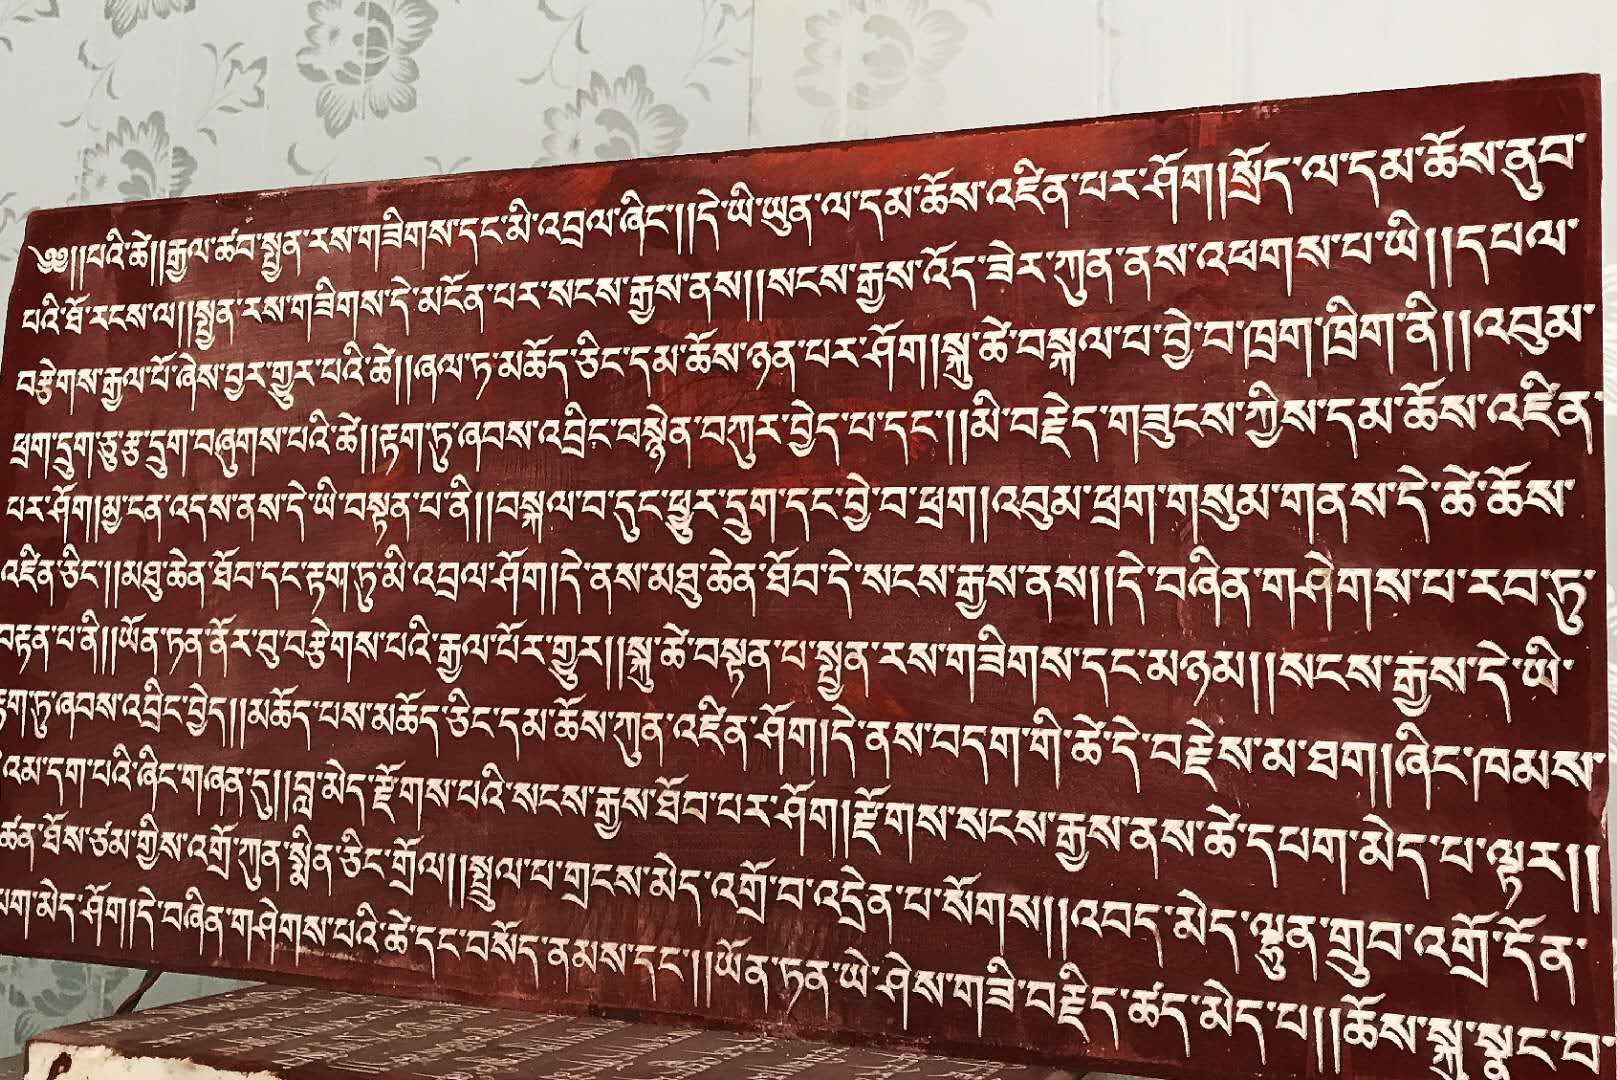 ༄༅།།པའི་ཚེ།།རྒྱལ་ཚབ་སྤྱན་རས་གཟིགས་དང་མི་འབྲལ་ཞིང་།།དེ་ཡི་ཡུན་ལ་དམ་ཆོས་འཛིན་པར་ཤོག།སྲོད་ལ་དམ་ཆོས་ནུབ་
པའི་ཐོ་རངས་ལ།།སྤྱན་རས་གཟིགས་དེ་མངོན་པར་སངས་རྒྱས་ནས།།སངས་རྒྱས་འོད་ཟེར་ཀུན་ནས་འཕགས་པ་ཡི།།དཔལ་
བརྩེགས་རྒྱལ་པོ་ཞེས་བྱར་གྱུར་པའི་ཚེ།།ཞལ་ཏ་མཆོད་ཅིང་དམ་ཆོས་ཉན་པར་ཤོག།སྐུ་ཚེ་བསྐལ་པ་བྱེ་བ་ཁྲག་ཁྲིག་ནི།།འབུམ་
ཕྲག་དྲུག་ཅུ་རྩ་དྲུག་བཞུགས་པའི་ཚེ།།རྟག་ཏུ་ཞབས་འབྲིང་བསྙེན་བཀུར་བྱེད་པ་དང་།།མི་བརྗེད་གཟུངས་ཀྱིས་དམ་ཆོས་འཛིན་
པར་ཤོག།མྱ་ངན་འདས་ནས་དེ་ཡི་བསྟན་པ་ནི།།བསྐལ་བ་དུང་ཕྱུར་དྲུག་དང་བྱེ་བ་ཕྲག།འབུམ་ཕྲག་གསུམ་གནས་དེ་ཚེ་ཆོས་
འཛིན་ཅིང་།།མཐུ་ཆེན་ཐོབ་དང་རྟག་ཏུ་མི་འབྲལ་ཤོག།དེ་ནས་མཐུ་ཆེན་ཐོབ་དེ་སངས་རྒྱས་ནས།།དེ་བཞིན་གཤེགས་པ་རབ་ཏུ་
བརྟན་པ་ནི།།ཡོན་ཏན་ནོར་བུ་བརྩེགས་པའི་རྒྱལ་པོར་གྱུར།།སྐུ་ཚེ་བསྟན་པ་སྤྱན་རས་གཟིགས་དང་མཉམ།།སངས་རྒྱས་དེ་ཡི་
རྟག་ཏུ་ཞབས་འབྲིང་བྱེད།།མཆོད་པས་མཆོད་ཅིང་དམ་ཆོས་ཀུན་འཛིན་ཤོག།དེ་ནས་བདག་གི་ཚེ་དེ་བརྗེས་མ་ཐག།ཞིང་ཁམས་
འམ་དག་པའི་ཞིང་གཞན་དུ།།བླ་མེད་རྫོགས་པའི་སངས་རྒྱས་ཐོབ་པར་ཤོག།རྫོགས་སངས་རྒྱས་ནས་ཚེ་དཔག་མེད་པ་ལྟར།།
མཚན་ཐོས་ཙམ་གྱིས་འགྲོ་ཀུན་སྨིན་ཅིང་གྲོལ།།སྤྲུལ་པ་གྲངས་མེད་འགྲོ་བ་འདྲེན་པ་སོགས།།འབད་མེད་ལྷུན་གྲུབ་འགྲོ་དོན་
དཔག་མེད་ཤོག།དེ་བཞིན་གཤེགས་པའི་ཚེ་དང་བསོད་ནམས་དང་།།ཡོན་ཏན་ཡེ་ཤེས་གཟི་བརྗིད་ཚད་མེད་པ།།ཆོས་སྐུ་སྣང་བ་